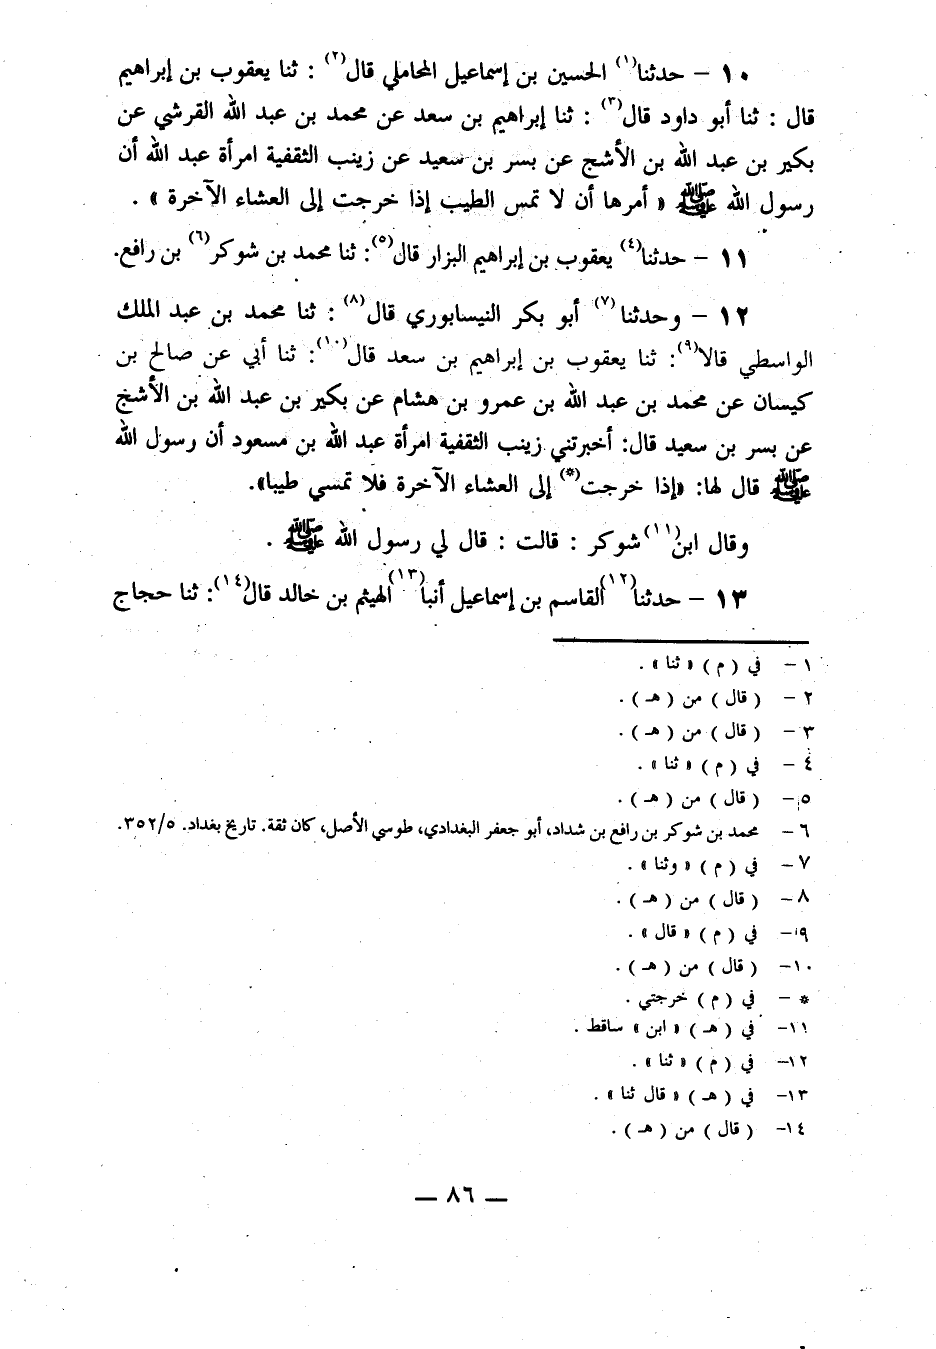 ١٠ – حدثنا(١) الحسين بن إسماعيل المحاملي قال(٢) : ثنا يعقوب بن إبراهيم
قال : ثنا أبو داود قال(٣) : ثنا إبراهيم بن سعد عن محمد بن عبد الله القرشي عن
بكير بن عبد الله بن الأشج عن بسر بن سعيد عن زينب الثقفية امرأة عبد الله أن
رسول الله ﷺ « أمرها أن لا تمس الطيب إذا خرجت إلى العشاء الآخرة » .
١١ – حدثنا(٤) يعقوب بن إبراهيم البزار قال(٥): ثنا محمد بن شوكر(٦) بن رافع.
١٢ – وحدثنا(٧) أبو بكر النيسابوري قال(٨) : ثنا محمد بن عبد الملك
الواسطي قالا(٩): ثنا يعقوب بن إبراهيم بن سعد قال(١٠): ثنا أبي عن صالح بن
كيسان عن محمد بن عبد الله بن عمرو بن هشام عن بكير بن عبد الله بن الأشج
عن بسر بن سعيد قال: أخبرتني زينب الثقفية امرأة عبد الله بن مسعود أن رسول الله
ﷺ قال لها: «إذا خرجت(*) إلى العشاء الآخرة فلا تمسي طيبا».
وقال ابن(١١) شوكر : قالت : قال لي رسول الله ﷺ .
١٣ – حدثنا(١٢) القاسم بن إسماعيل أنبا(١٣) الهيثم بن خالد قال(١٤): ثنا حجاج
١ – في ( م ) « ثنا » .
٢ – ( قال ) من ( هـ ) .
٣ – ( قال ) من ( هـ ) .
٤ – في ( م ) « ثنا » .
٥ – ( قال ) من ( هـ ) .
٦ – محمد بن شوكر بن رافع بن شداد، أبو جعفر البغدادي، طوسي الأصل، كان ثقة. تاريخ بغداد. ٣٥٢/٥.
٧ – في ( م ) « وثنا » .
٨ – ( قال ) من ( هـ ) .
٩ – في ( م ) « قال » .
١٠ – ( قال ) من ( هـ ) .
* – في ( م ) خرجتي .
١١ – في ( هـ ) « ابن » ساقط .
١٢ – في ( م ) « ثنا » .
١٣ – في ( هـ ) « قال ثنا » .
١٤ – ( قال ) من ( هـ ) .
— ٨٦ —